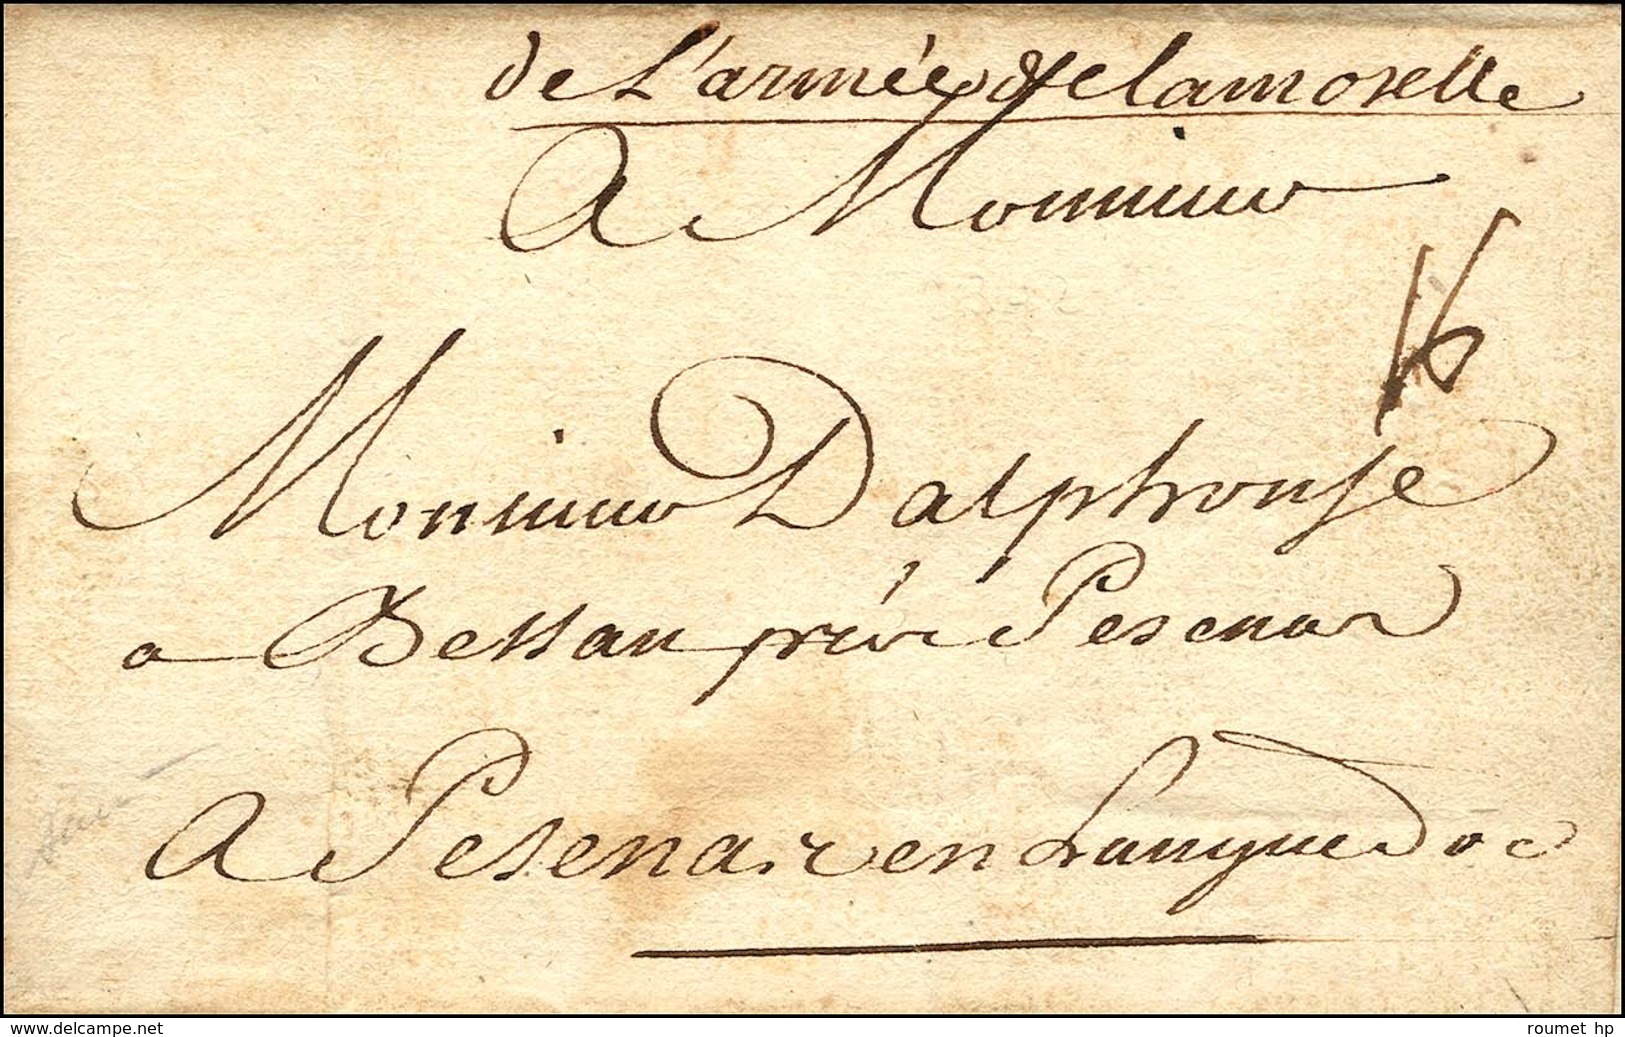 de L'armée de lamoselle
A Monsieur
16
Monsieur Dalphonse
a Bessan près Pesenas
A Pesenas en Languedoc
www.delcampe.net
roumet hp